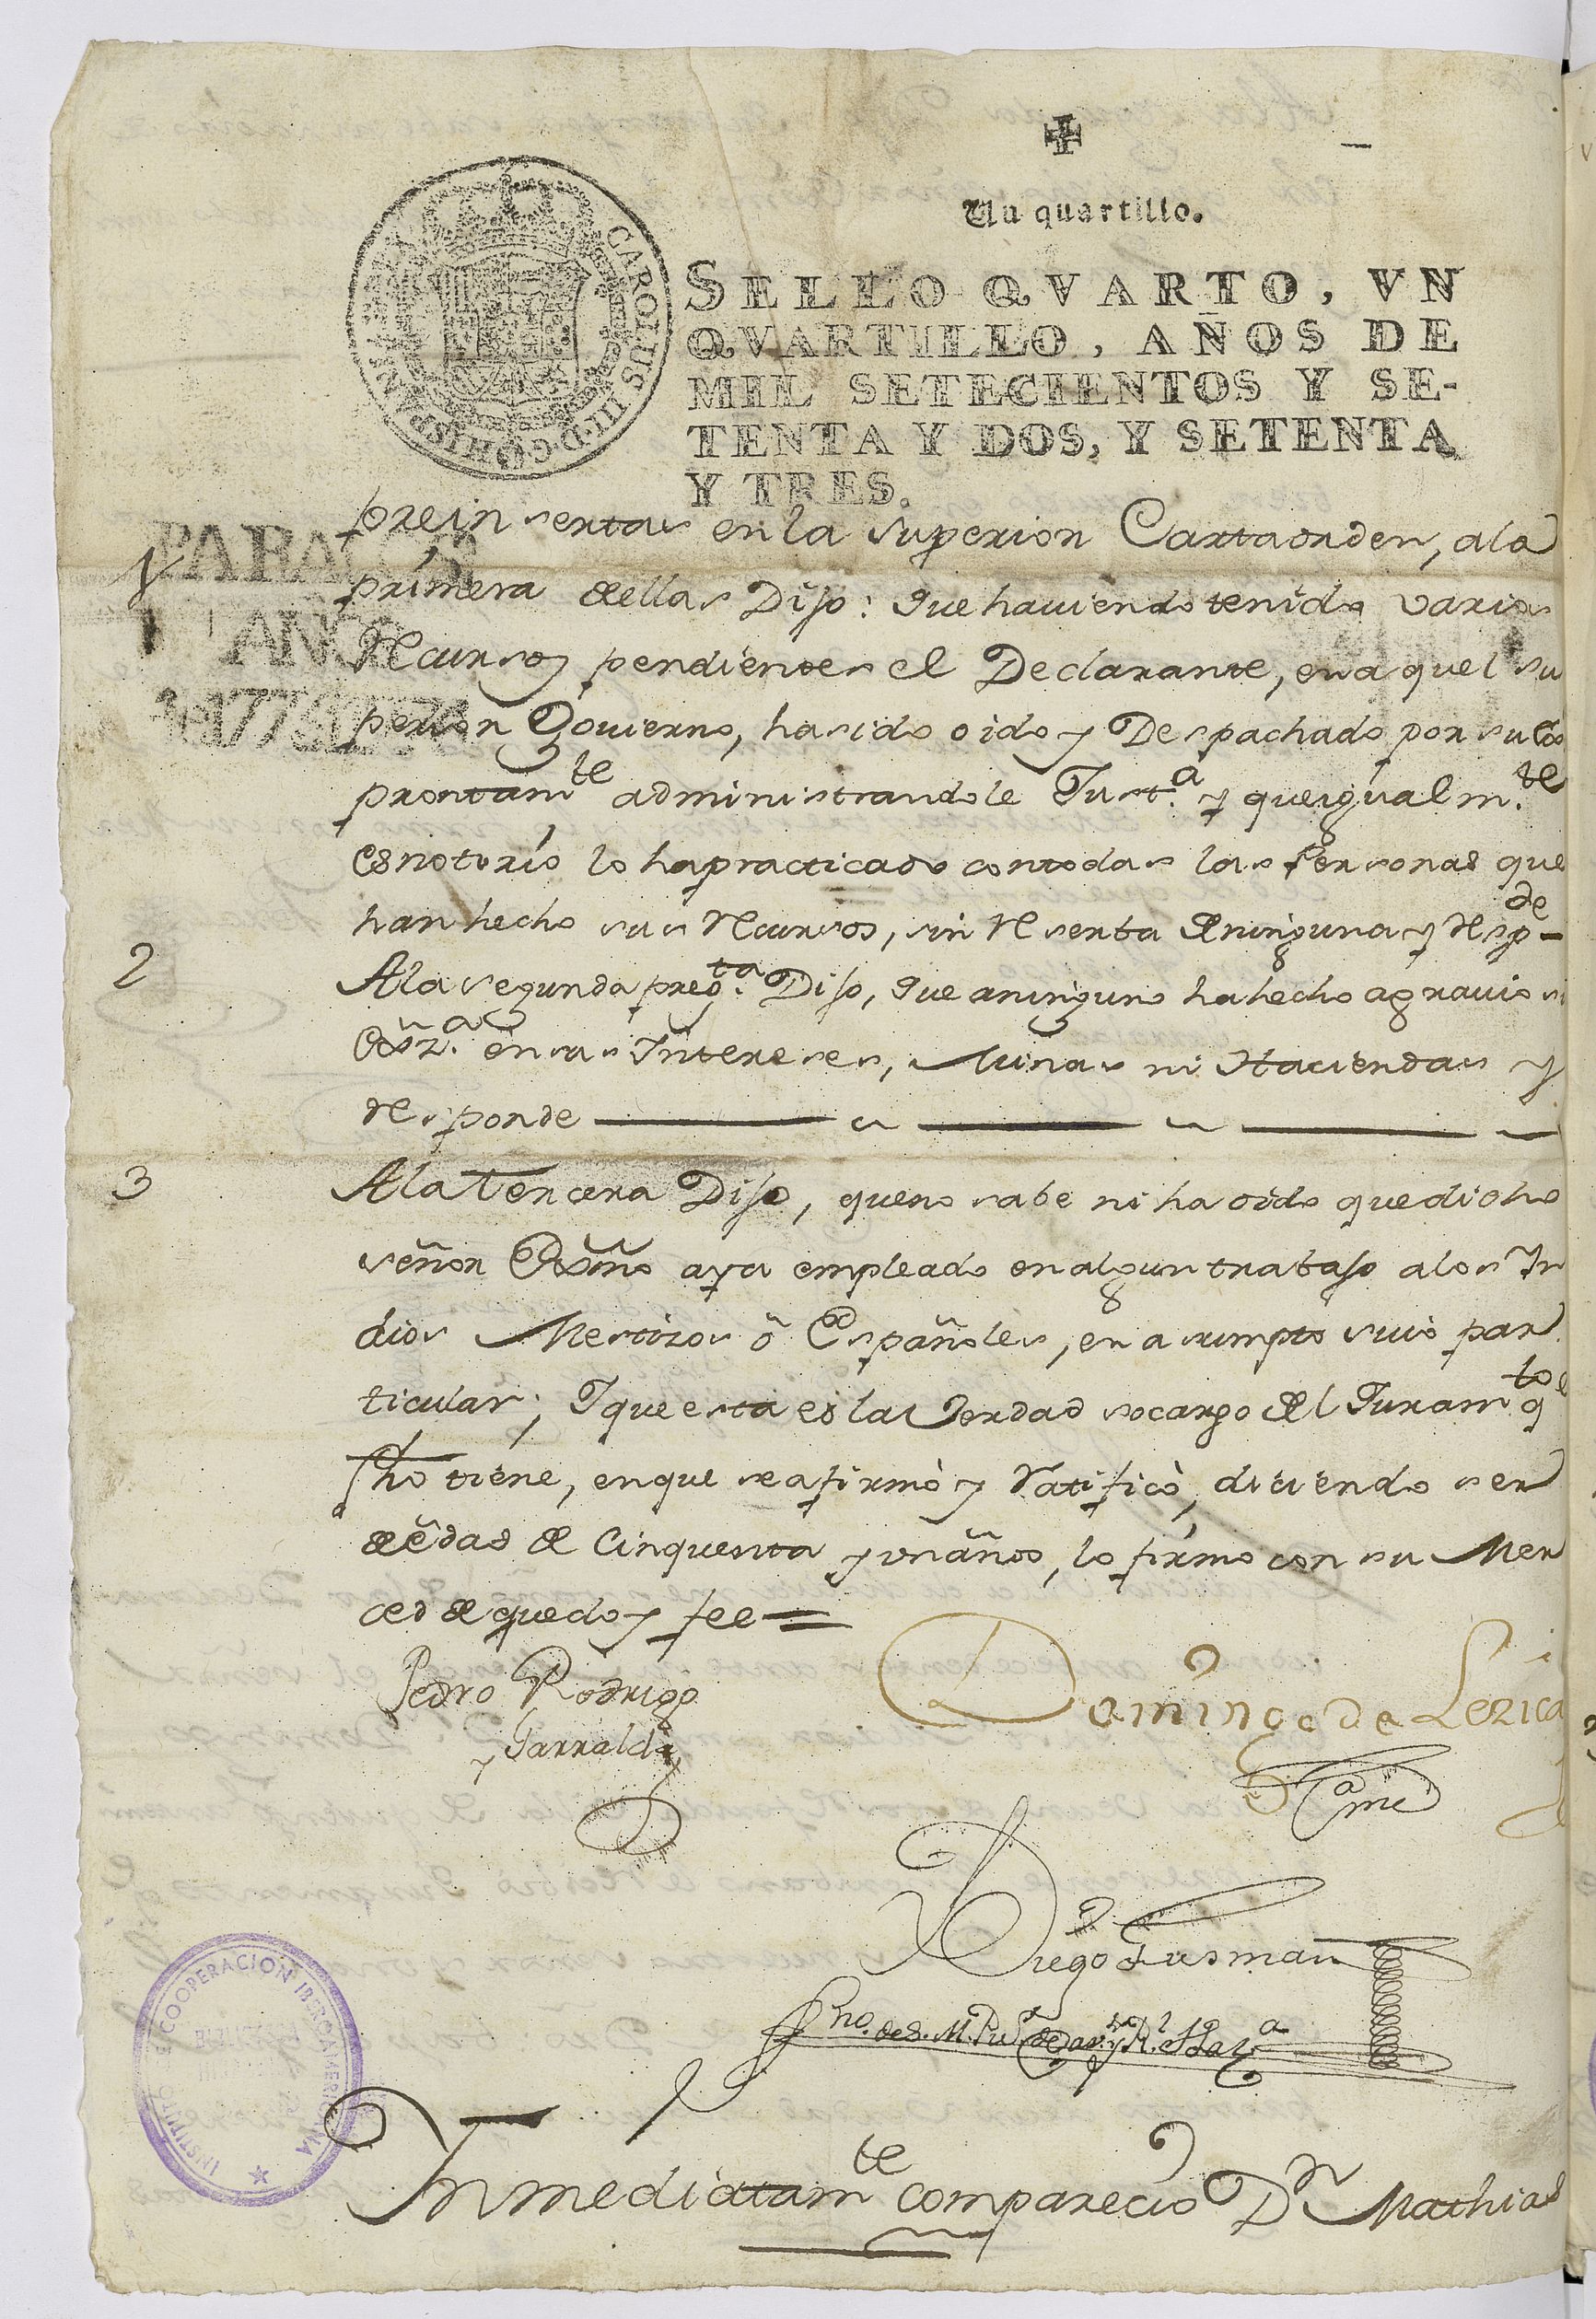 Un quartillo.
SELLO QVARTO, VN
QVARTILLO, AÑOS DE
MIL SETECIENTOS Y SE-
TENTA Y DOS, Y SETENTA
Y TRES.
CAROLUS III D G HISPAN
preinsertas en la superior Carta orden, a la
PARA LOS
1
primera de ellas Dijo: Que haviendo tenido varios
AÑOS
Recursos pendientes el Declarante, en aquel su
perior Govierno, ha sido oido y Despachado por su
prontamte administrandole Justa. y que igualm.te
es notorio lo ha practicado con todas las Personas que
han hecho sus Recursos, sin Reserba de ninguna y Resp-de
2
A la segunda preg.ta Dijo, Que a ninguno ha hecho agravio
en sus Intereses, Minas ni Haciendas y
Responde
3
A la tercera Dijo, que no sabe ni ha oido que dicho
señor Exmo aya empleado en algun trabajo a los In
dios Mestizos ô Españoles, en asumpto suio par
ticular; Y que esta es la Verdad so cargo del Juramto q̃
fho tiene, en que se afirmò y Ratificò, diciendo ser
de edad de Cinquenta y un años, lo firmo con su Mer
ced de que doy fee =
Pedro Rodrigo
y Garralda
Domingo de Lezica
Ante mi
Diego Gusman
Sno. de S. M. Pu.
INSTITUTO DE COOPERACIÓN IBEROAMERICANA
Inmediatamte comparecio Dn Mathias